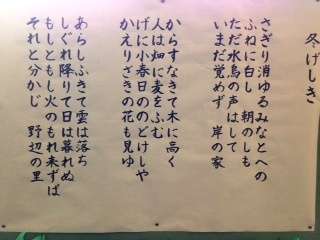 冬げしき
さぎり消ゆるみなとへの
ふねに白し　朝のしも
ただ水鳥の声はして
いまだ覚めず　岸の家
からすなきて木に高く
人は畑に麦をふむ
げに小春日ののどけしや
かえりざきの花も見ゆ
あらしふきて雲は落ち
しぐれ降りて日は暮れぬ
もしともし火のもれ来ずば
それと分かじ　野辺の里